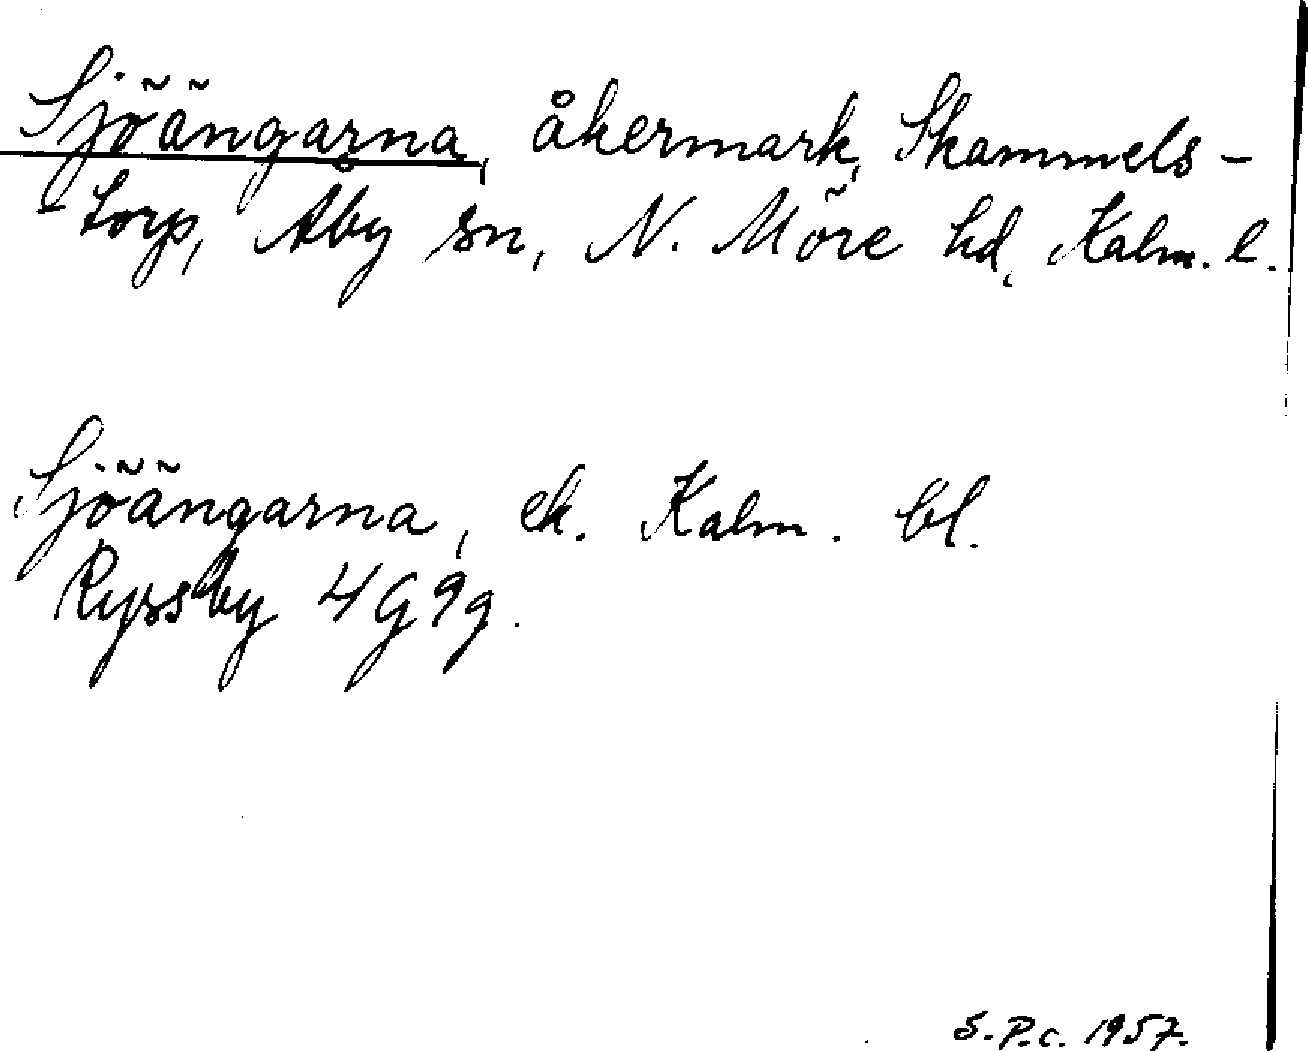 Sjöängarna, åkermark, Skammels-
-torp, Åby sn, N. Möre hd, Kalm. l.
Sjöängarna, ek. Kalm. bl.
Ryssby 4G9g.
S.P.C. 1957.